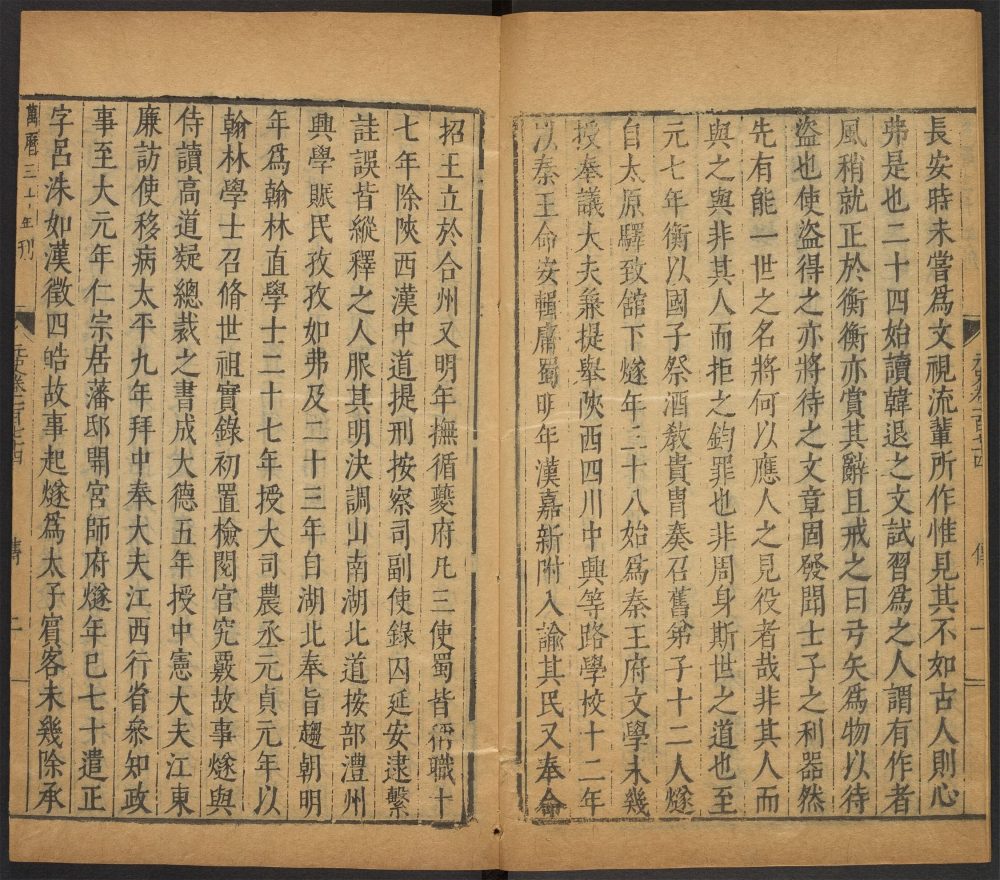 長安時未嘗爲文視流輩所作惟見其不如古人則心
弗是也二十四始讀韓退之文試習爲之人謂有作者
風稍就正於衡衡亦賞其辭且戒之曰弓矢爲物以待
盜也使盜得之亦將待之文章固發聞士子之利器然
先有能一世之名將何以應人之見役者哉非其人而
與之與非其人而拒之鈞罪也非周身斯世之道也至
元七年衡以國子祭酒敎貴胄奏召舊弟子十二人燧
自太原驛致舘下燧年三十八始爲秦王府文學未幾
授奉議大夫兼提舉陝西四川中興等路學校十二年
以秦王命安輯庸蜀明年漢嘉新附入諭其民又奉命
招王立於合州又明年撫循夔府凡三使蜀皆稱職十
七年除陝西漢中道提刑按察司副使錄囚延安逮繫
詿誤皆縱釋之人服其明決調山南湖北道按部澧州
興學賑民孜孜如弗及二十三年自湖北奉旨趨朝明
年爲翰林直學士二十七年授大司農丞元貞元年以
翰林學士召脩世祖實錄初置檢閱官究覈故事燧與
侍讀高道凝總裁之書成大德五年授中憲大夫江東
廉訪使移病太平九年拜中奉大夫江西行省參知政
事至大元年仁宗居藩邸開宮師府燧年已七十遣正
字呂洙如漢徵四皓故事起燧爲太子賓客未幾除承
萬曆三十年刊
元史卷一百七十四 傳 二